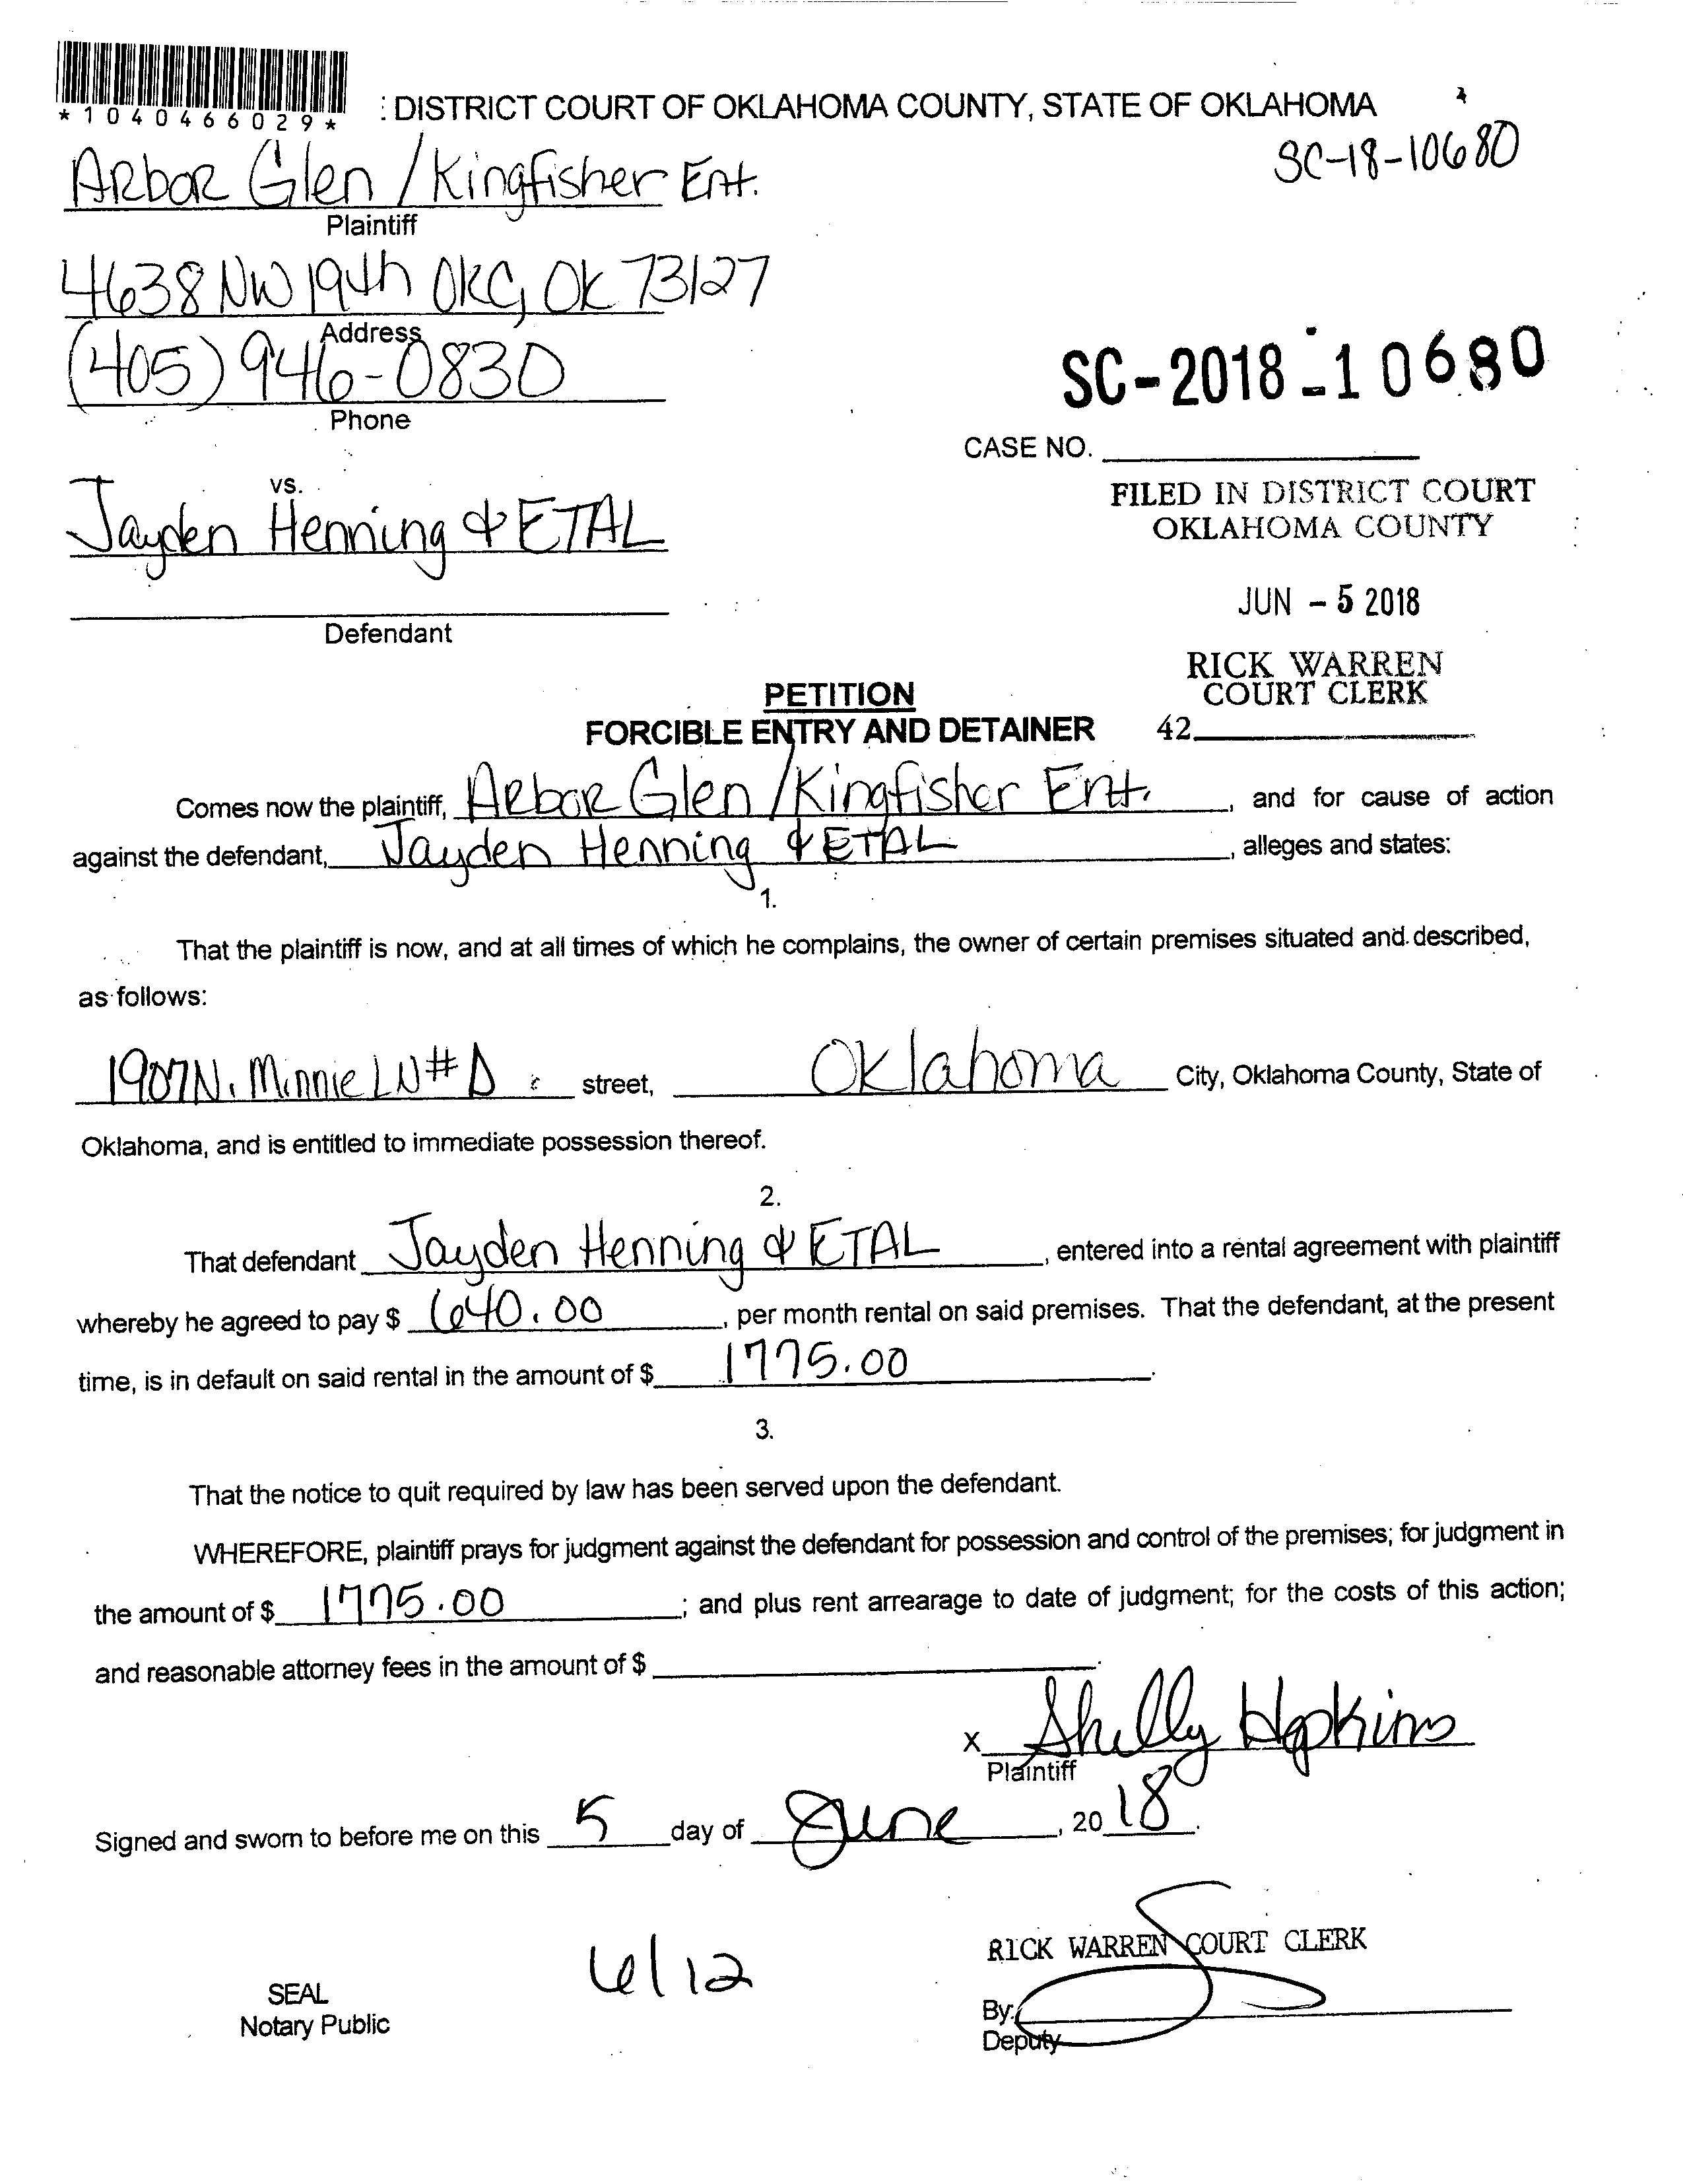 *1040466029*
: DISTRICT COURT OF OKLAHOMA COUNTY, STATE OF OKLAHOMA
SC-18-10680
ARbOR Glen / Kingfisher Ent.
Plaintiff
4638 NW 19th OKC, OK 73127
Address
(405) 946-0830
Phone
SC-2018-10680
CASE NO.
vs.
Jayden Henning & ETAL
Defendant
FILED IN DISTRICT COURT
OKLAHOMA COUNTY
JUN - 5 2018
RICK WARREN
COURT CLERK
42
PETITION
FORCIBLE ENTRY AND DETAINER
Comes now the plaintiff, ARbOR Glen / Kingfisher Ent. , and for cause of action
against the defendant, Jayden Henning & ETAL , alleges and states:
1.
That the plaintiff is now, and at all times of which he complains, the owner of certain premises situated and described,
as follows:
1907 N. Minnie LN # D street, Oklahoma City, Oklahoma County, State of
Oklahoma, and is entitled to immediate possession thereof.
2.
That defendant Jayden Henning & ETAL , entered into a rental agreement with plaintiff
whereby he agreed to pay $ 640.00 , per month rental on said premises. That the defendant, at the present
time, is in default on said rental in the amount of $ 1775.00 .
3.
That the notice to quit required by law has been served upon the defendant.
WHEREFORE, plaintiff prays for judgment against the defendant for possession and control of the premises; for judgment in
the amount of $ 1775.00 ; and plus rent arrearage to date of judgment; for the costs of this action;
and reasonable attorney fees in the amount of $ .
x Shelly Hopkins
Plaintiff
Signed and sworn to before me on this 5 day of June , 20 18 .
6/12
RICK WARREN COURT CLERK
SEAL
Notary Public
By:
Deputy